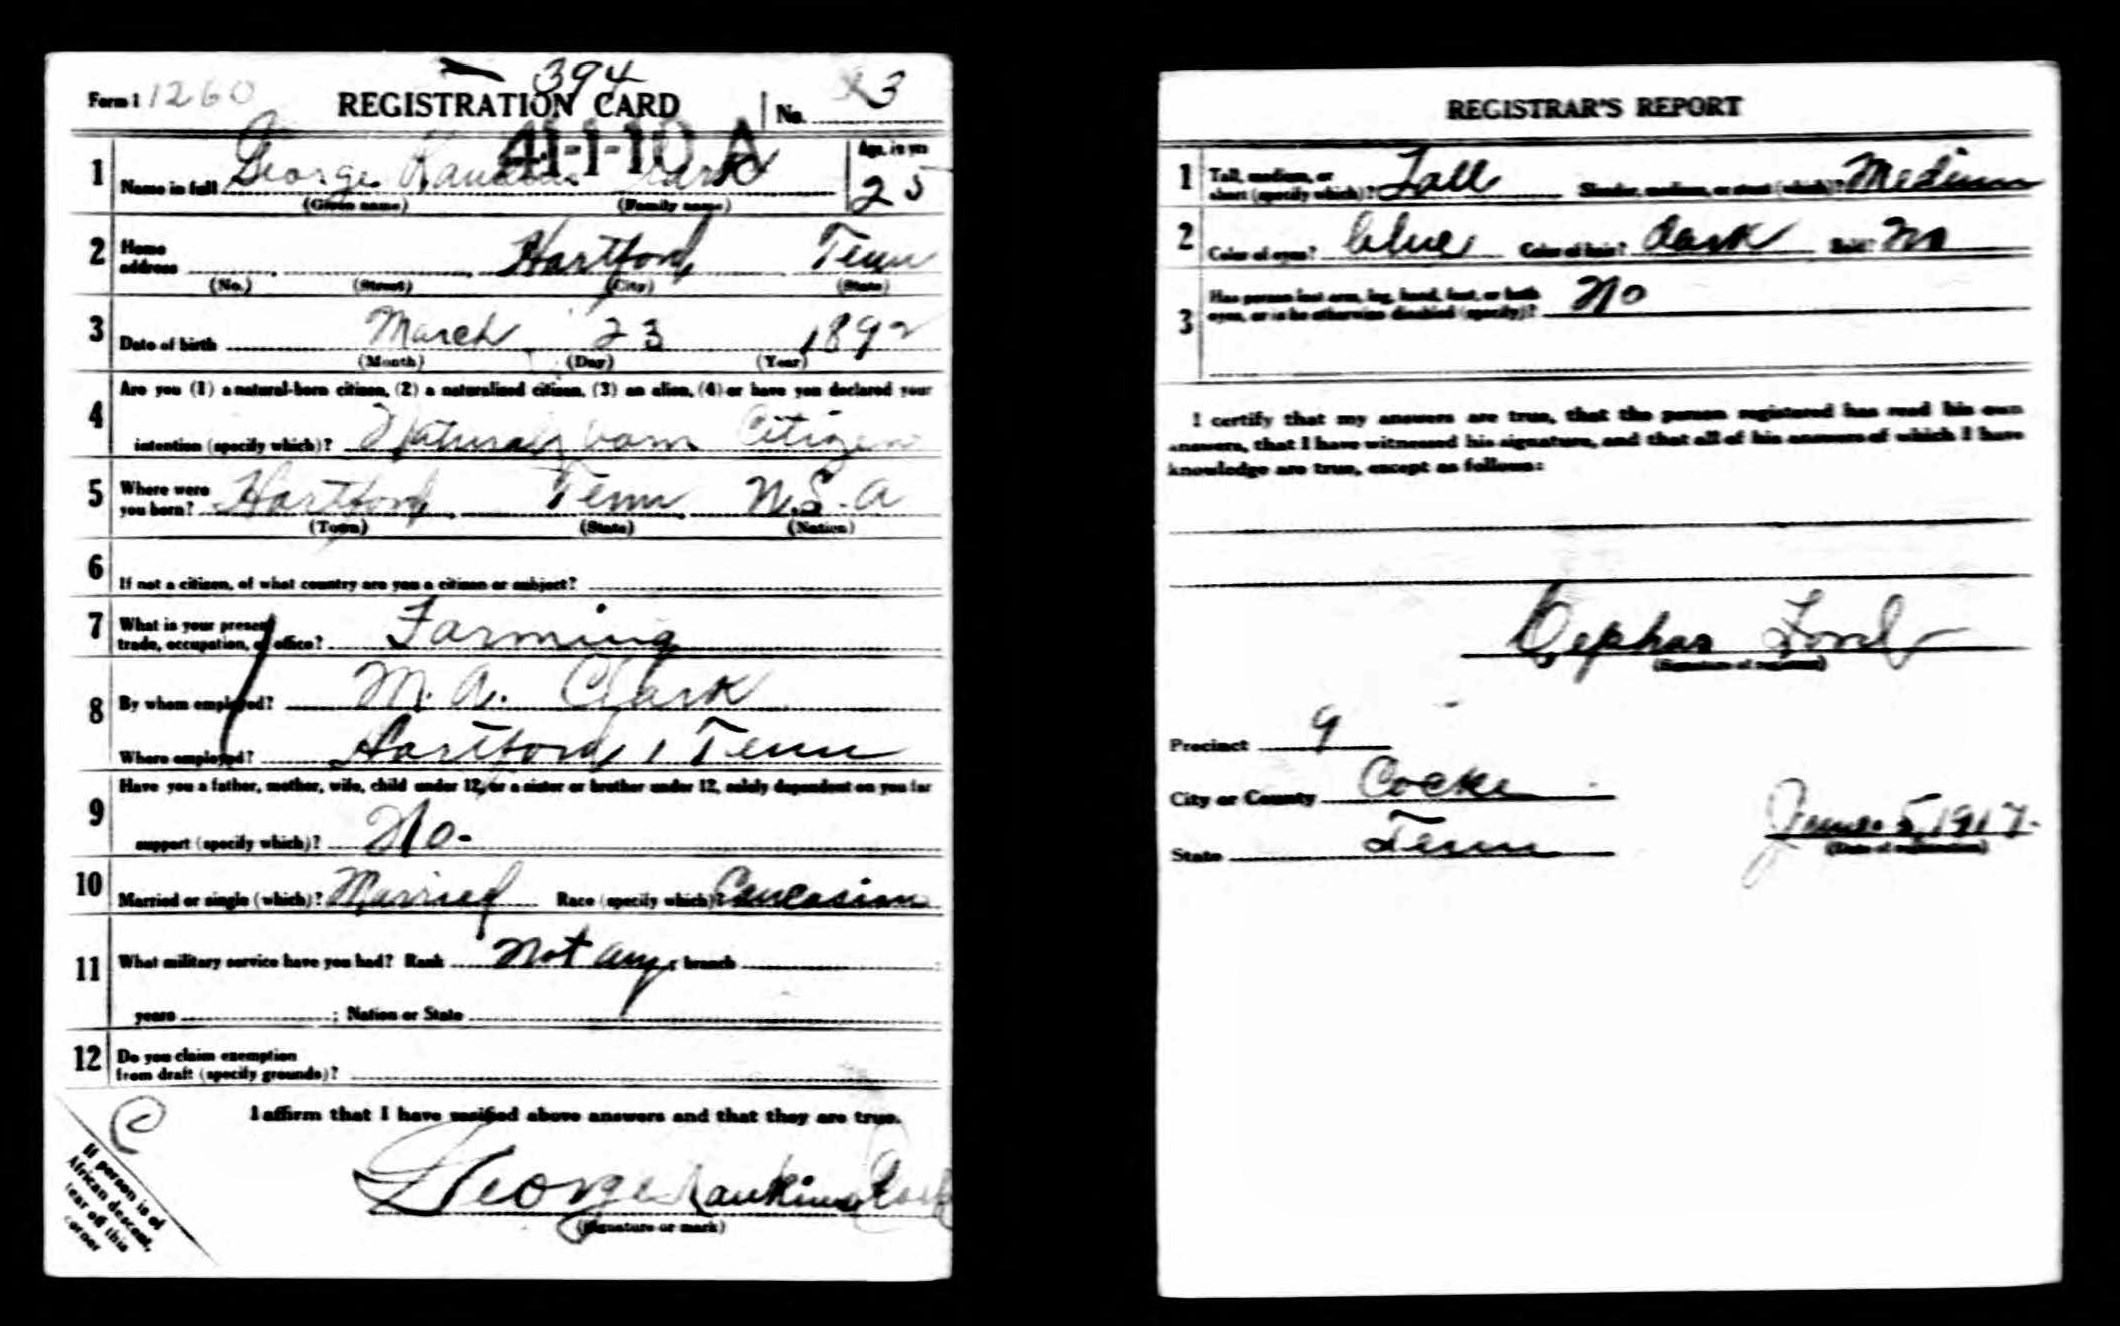 394
Form 1 1260 REGISTRATION CARD No. 3
41-1-10 A
1 Name in full George Clark Age, in yrs 25
(Given name) (Family name)
2 Home address Hartford Tenn
(No.) (Street) (City) (State)
3 Date of birth March 23 1892
(Month) (Day) (Year)
Are you (1) a natural-born citizen, (2) a naturalized citizen, (3) an alien, (4) or have you declared your
4 intention (specify which)? Natural born Citizen
5 Where were you born? Hartford Tenn U.S.A
(Town) (State) (Nation)
6 If not a citizen, of what country are you a citizen or subject?
7 What is your present trade, occupation, or office? Farming
8 By whom employed? M. A. Clark
Where employed? Hartford, Tenn
Have you a father, mother, wife, child under 12, or a sister or brother under 12, solely dependent on you for
9 support (specify which)? No-
10 Married or single (which)? Married Race (specify which)? Caucasian
11 What military service have you had? Rank Not any; branch
years ; Nation or State
12 Do you claim exemption from draft (specify grounds)?
I affirm that I have verified above answers and that they are true.
C
If person is of
African descent,
tear off this
corner
George Rankins Clark
(Signature or mark)
REGISTRAR'S REPORT
1 Tall, medium, or short (specify which)? Tall Slender, medium, or stout (which)? Medium
2 Color of eyes? blue Color of hair? dark Bald? No
3 Has person lost arm, leg, hand, foot, or both eyes, or is he otherwise disabled (specify)? No
I certify that my answers are true, that the person registered has read his own
answers, that I have witnessed his signature, and that all of his answers of which I have
knowledge are true, except as follows:
Cephas Ford
(Signature of registrar)
Precinct 9
City or County Cocke
State Tenn
June 5, 1917.
(Date of registration)